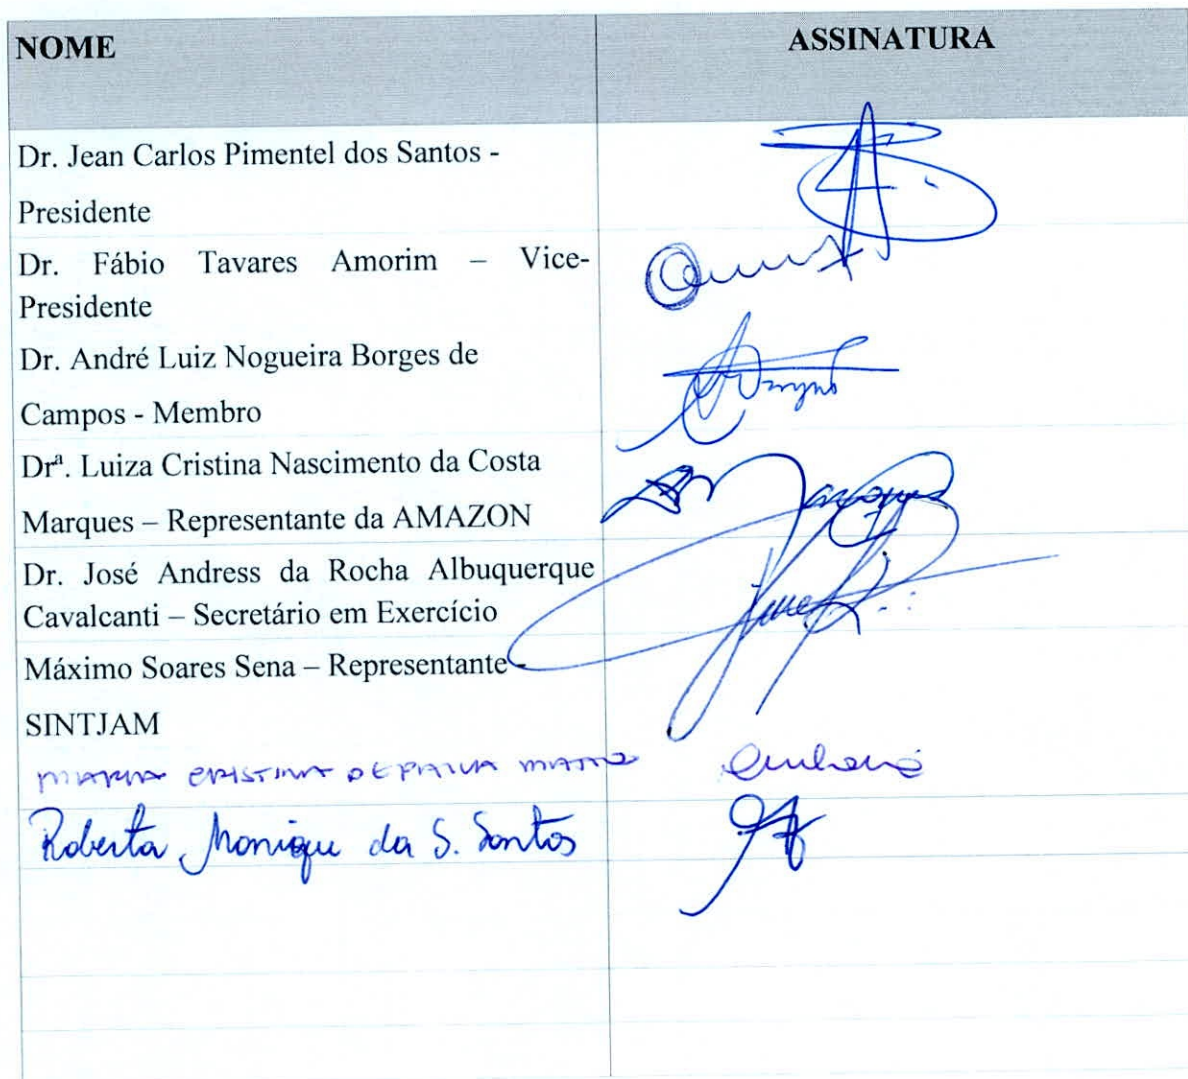 NOME
ASSINATURA
Dr. Jean Carlos Pimentel dos Santos -
Presidente
Dr. Fábio Tavares Amorim – Vice-
Presidente
Dr. André Luiz Nogueira Borges de
Campos - Membro
Drª. Luiza Cristina Nascimento da Costa
Marques – Representante da AMAZON
Dr. José Andress da Rocha Albuquerque
Cavalcanti – Secretário em Exercício
Máximo Soares Sena – Representante -
SINTJAM
MARIA CRISTINA DE PAIVA
Roberta Monique da S. Santos